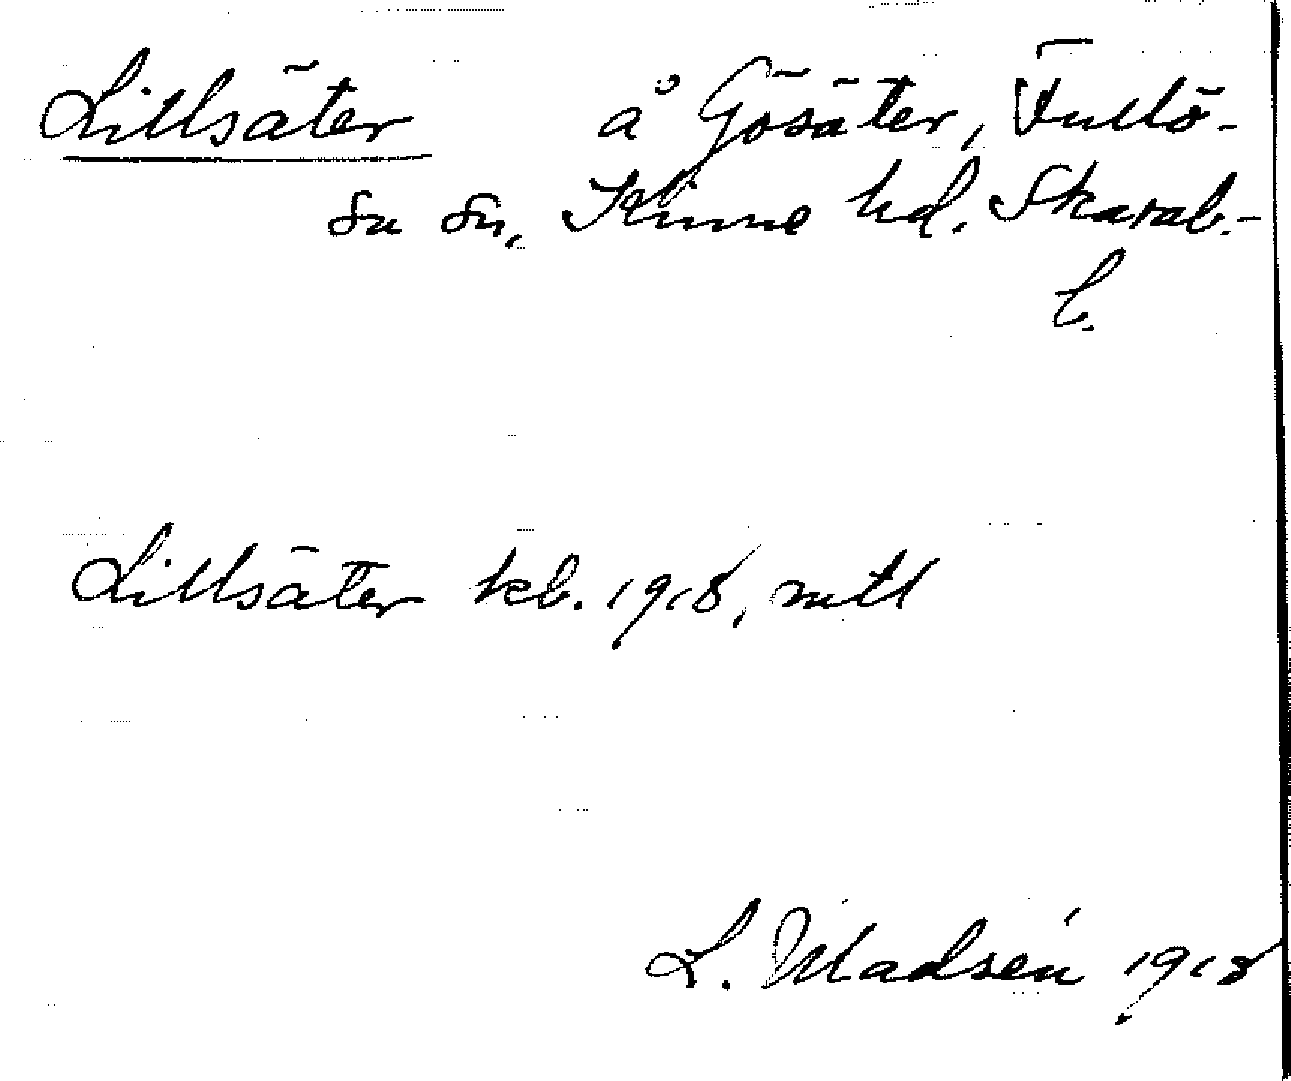 Lillsäter å Gösäter, Fullö-
sa sn, Kinne hd. Skarab.-
l.
Lillsäter kb. 1918, mtl
L. Madsén 1918